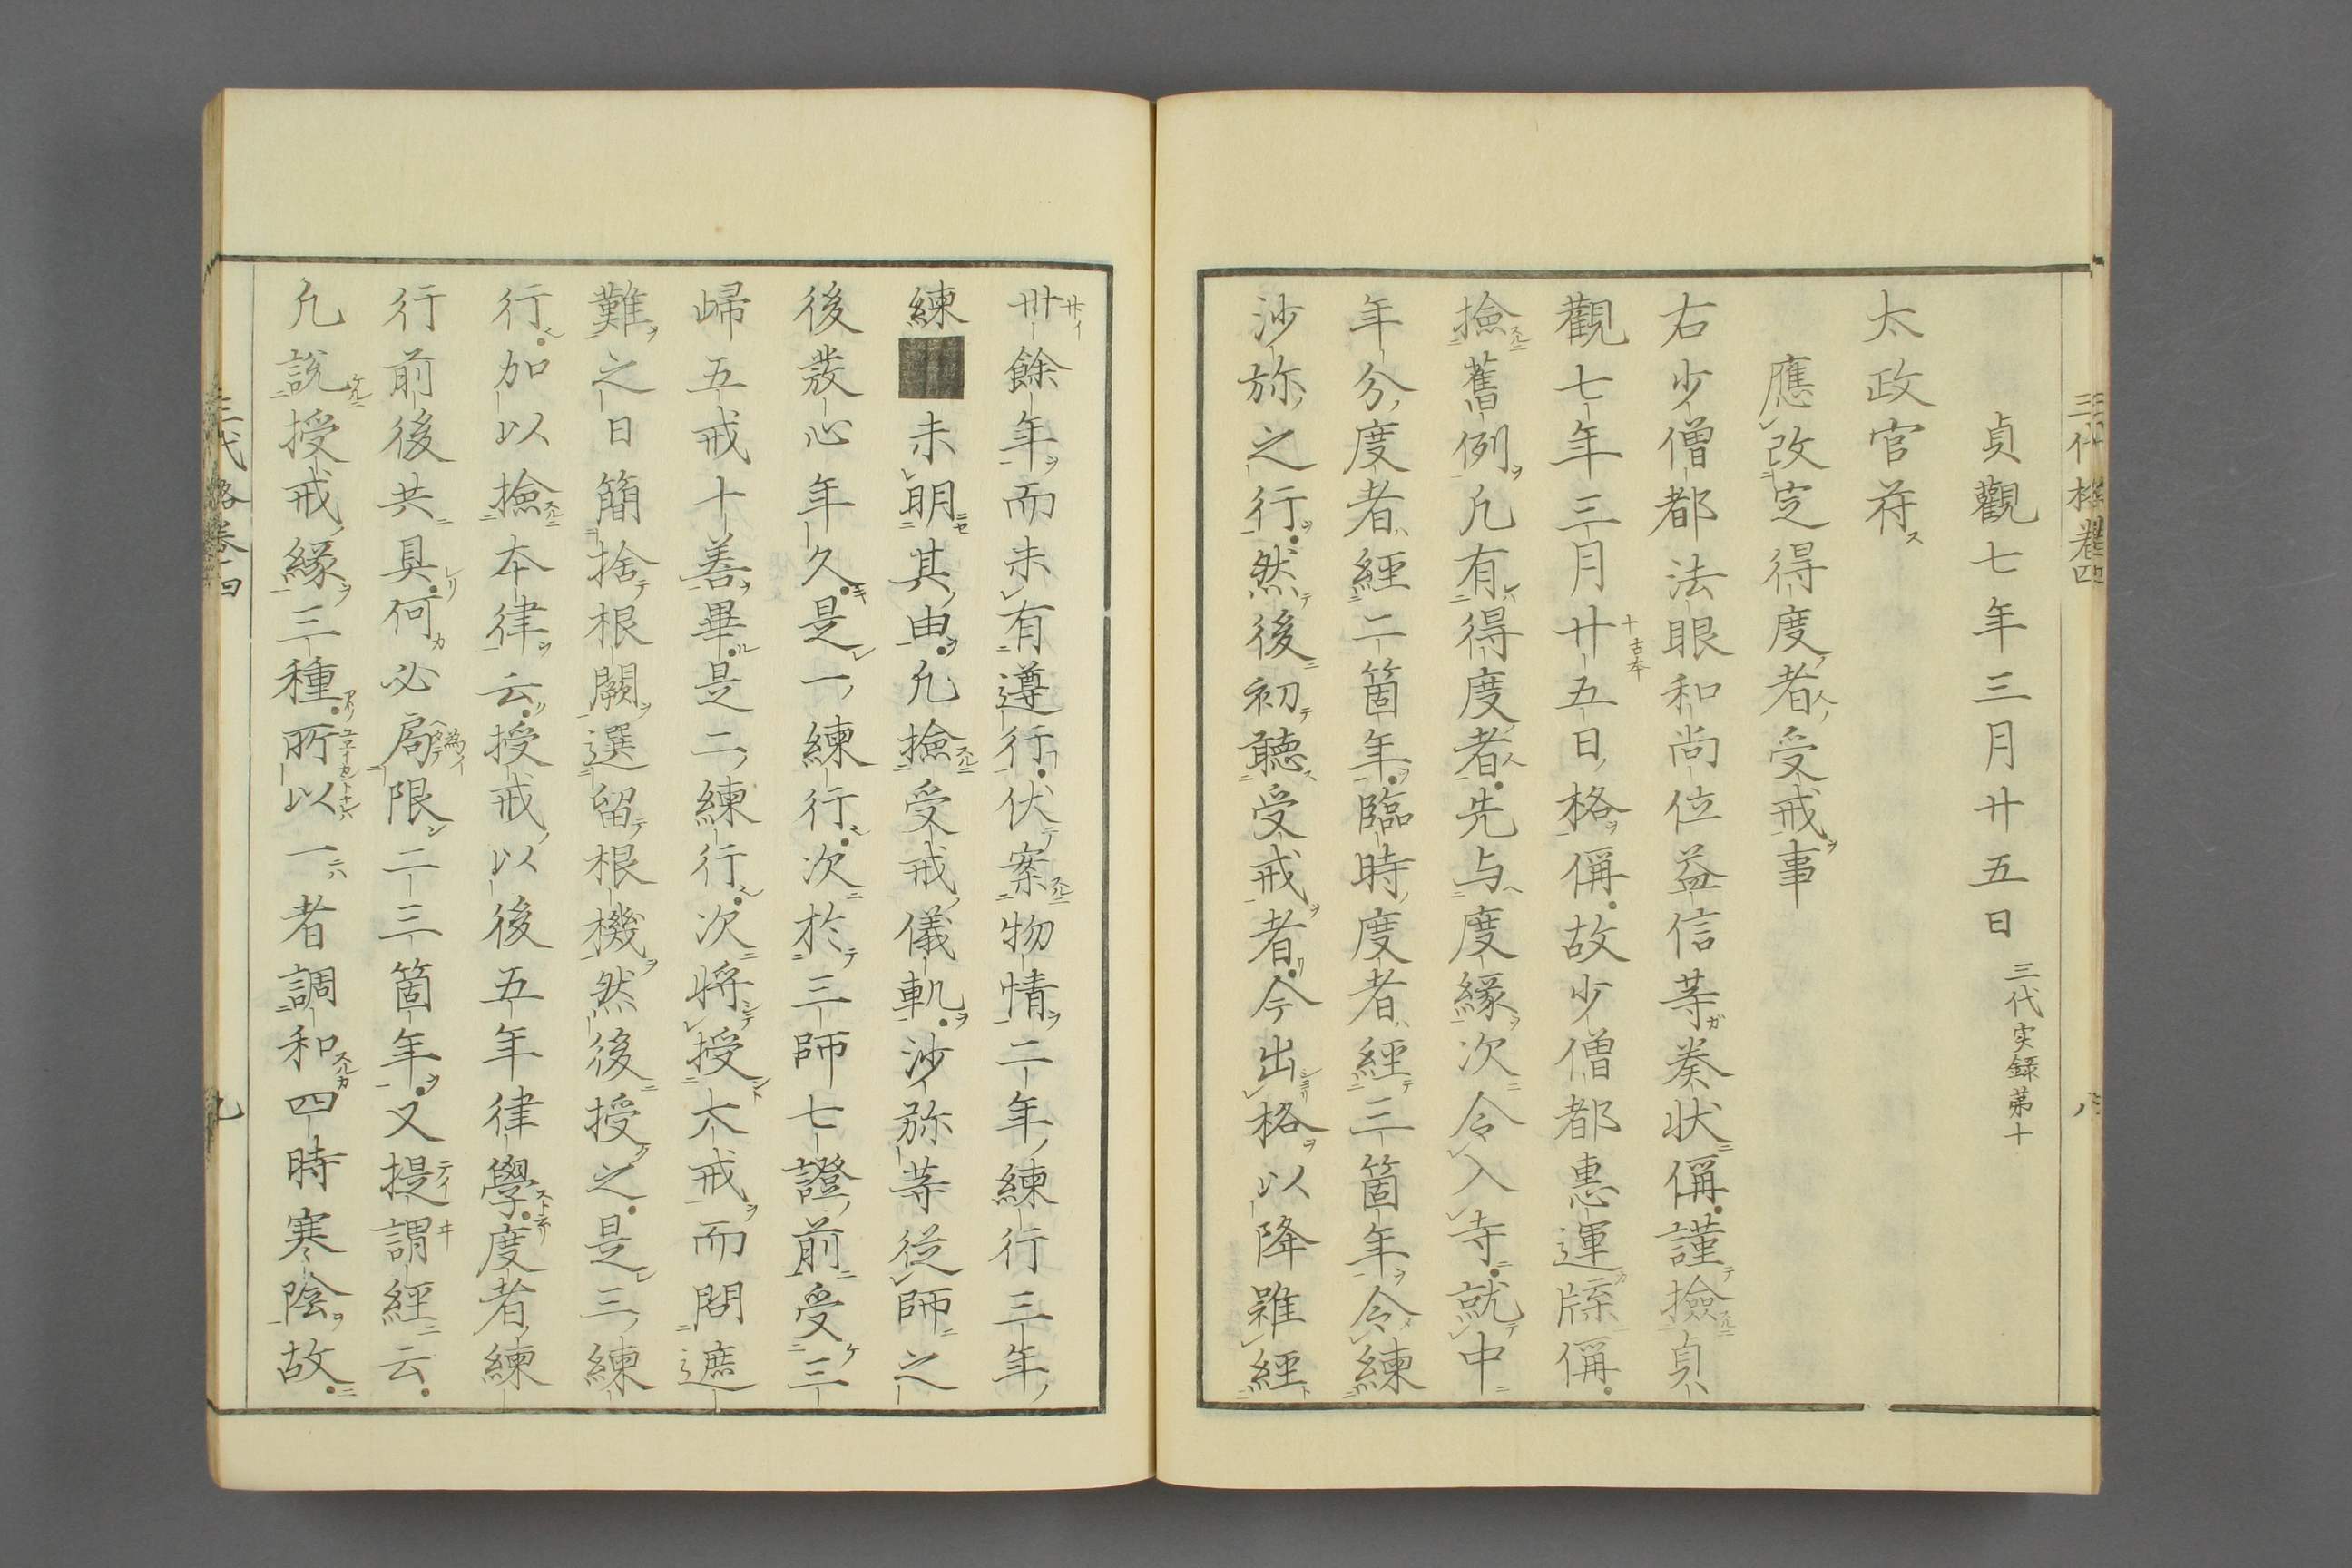 貞觀七年三月廿五日 三代実録第十
太政官符ス
應改定得度者受戒事
右少僧都法眼和尚位益信等奏状偁謹撿貞
觀七年三月廿五日格偁故少僧都惠運牒偁
撿舊例凡有得度者先与度緣次令入寺就中
年分度者經二箇年臨時度者經三箇年令練
沙弥之行然後初聽受戒者今出格以降雖經
卅餘年而未有遵行伏案物情二年練行三年
練■未明其由凡撿受戒儀軌沙弥等從師之
後發心年久是一練行次於三師七證前受三
歸五戒十善畢是二練行次將授大戒而問遮
難之日簡捨根闕選留根機然後授之是三練
行加以撿本律云授戒以後五年律學度者練
行前後共具何必局限二三箇年又提謂經云
凡說授戒緣三種所以一者調和四時寒陰故
三代格卷四
九